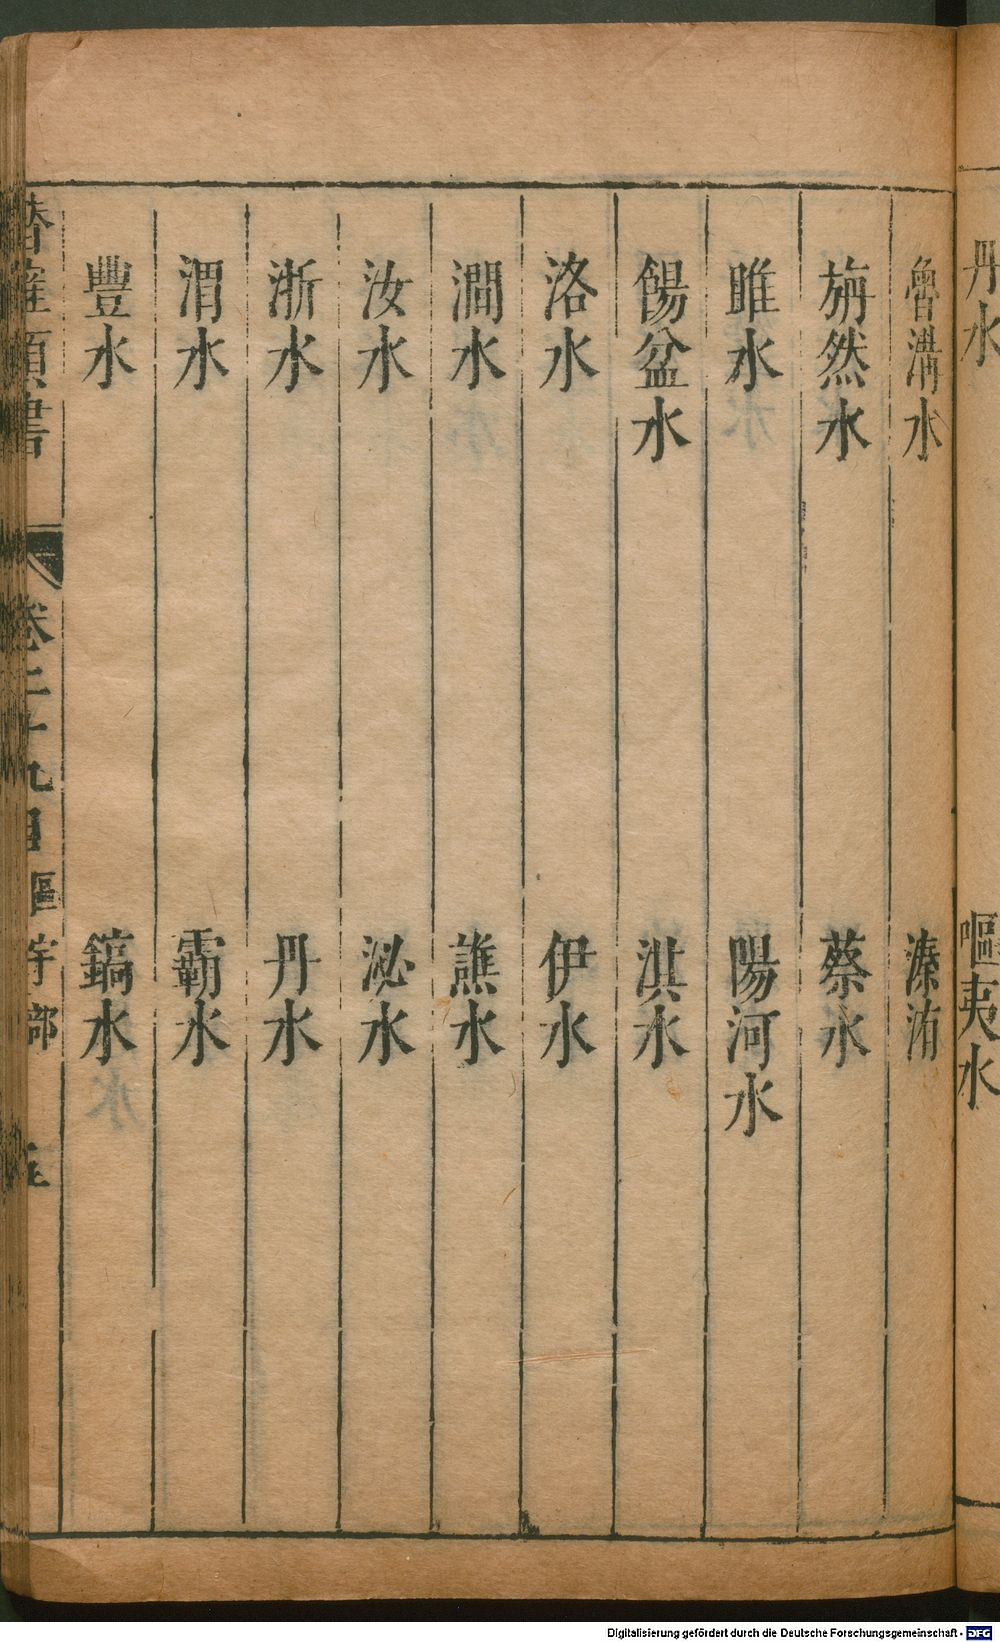 丹水
嘔夷水
魯溝水
溱洧
旃然水
蔡水
睢水
陽河水
餳盆水
淇水
洛水
伊水
澗水
譙水
汝水
泌水
浙水
丹水
渭水
霸水
豐水
鎬水
潛確類書
卷二十九目 區宇部 五
Digitalisierung gefördert durch die Deutsche Forschungsgemeinschaft - DFG